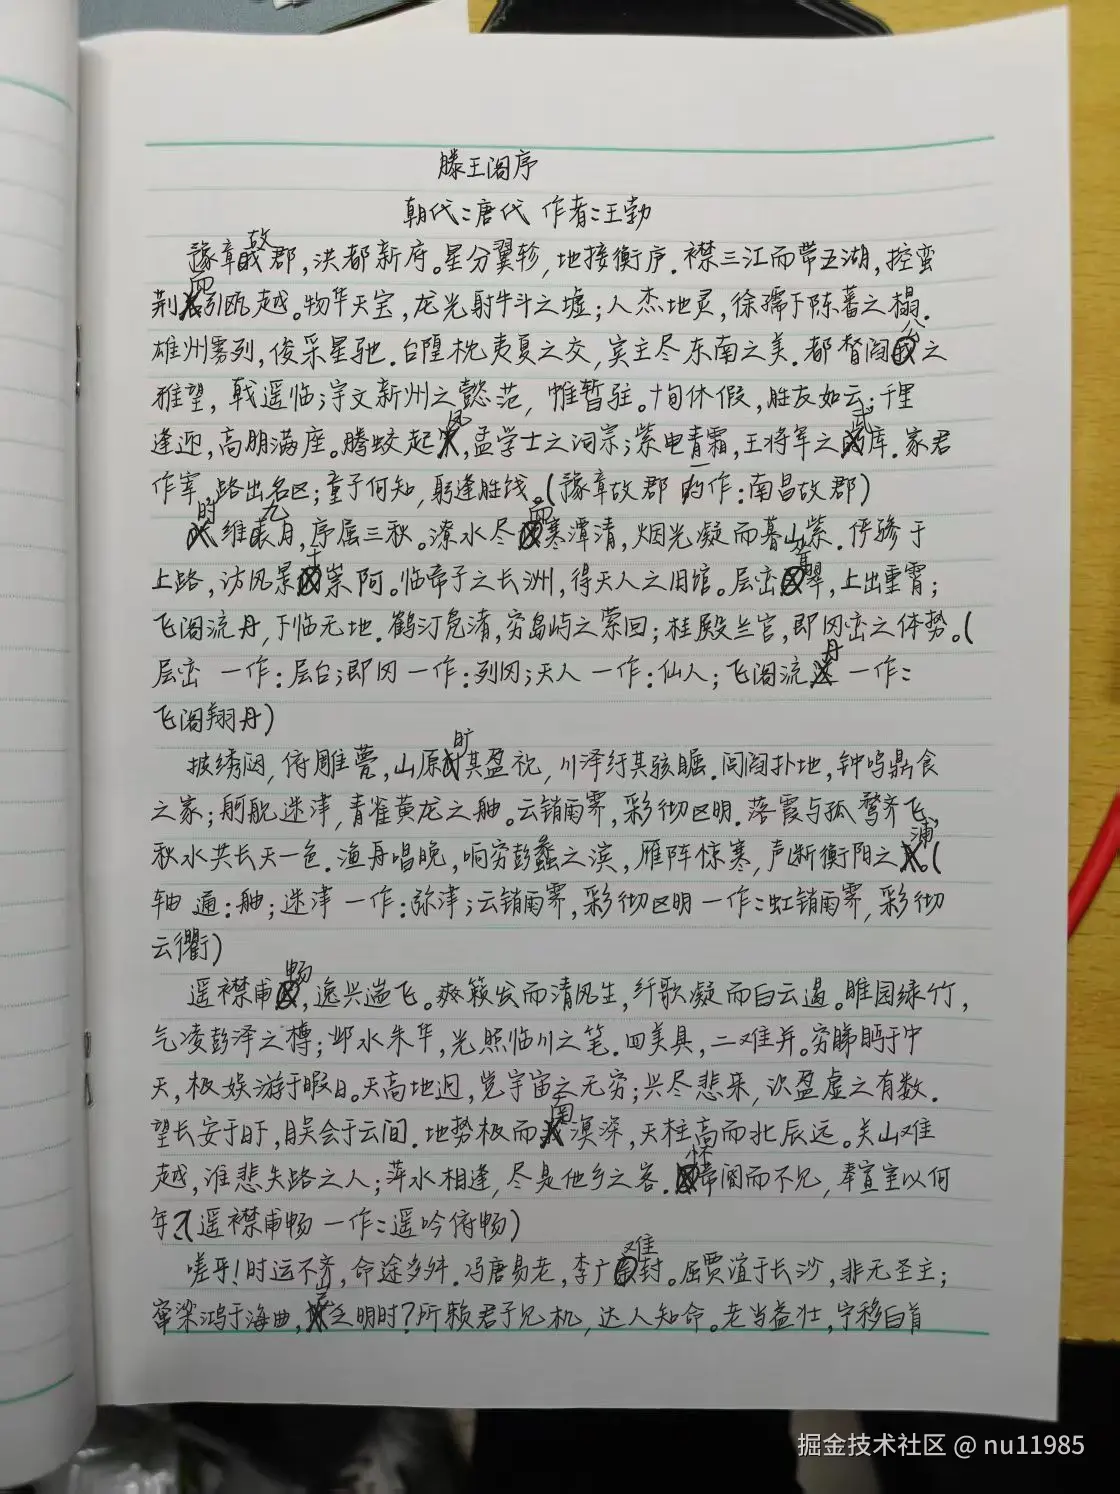 滕王阁序
朝代:唐代 作者:王勃
豫章故郡,洪都新府。星分翼轸,地接衡庐.襟三江而带五湖,控蛮
荆而引瓯越。物华天宝,龙光射牛斗之墟;人杰地灵,徐孺下陈蕃之榻.
雄州雾列,俊采星驰.台隍枕夷夏之交,宾主尽东南之美.都督阎公之
雅望,戟遥临;宇文新州之懿范,帷暂驻。十旬休假,胜友如云;千里
逢迎,高朋满座。腾蛟起凤,孟学士之词宗;紫电青霜,王将军之武库.家君
作宰,路出名区;童子何知,躬逢胜饯。(豫章故郡 一作:南昌故郡)
时维九月,序属三秋。潦水尽而寒潭清,烟光凝而暮山紫.俨骖于
上路,访风景于崇阿。临帝子之长洲,得天人之旧馆。层峦耸翠,上出重霄;
飞阁流丹,下临无地.鹤汀凫渚,穷岛屿之萦回;桂殿兰宫,即冈峦之体势。(
层峦 一作:层台;即冈 一作:列冈;天人 一作:仙人;飞阁流丹 一作:
飞阁翔丹)
披绣闼,俯雕甍,山原旷其盈视,川泽纡其骇瞩.闾阎扑地,钟鸣鼎食
之家;舸舰迷津,青雀黄龙之舳。云销雨霁,彩彻区明.落霞与孤鹜齐飞,
秋水共长天一色.渔舟唱晚,响穷彭蠡之滨,雁阵惊寒,声断衡阳之浦。(
轴 通:舳;迷津 一作:弥津;云销雨霁,彩彻区明 一作:虹销雨霁,彩彻
云衢)
遥襟甫畅,逸兴遄飞。爽籁发而清风生,纤歌凝而白云遏。睢园绿竹,
气凌彭泽之樽;邺水朱华,光照临川之笔.四美具,二难并。穷睇眄于中
天,极娱游于暇日。天高地迥,觉宇宙之无穷;兴尽悲来,识盈虚之有数.
望长安于日下,目吴会于云间.地势极而南溟深,天柱高而北辰远。关山难
越,谁悲失路之人;萍水相逢,尽是他乡之客.怀帝阍而不见,奉宣室以何
年?(遥襟甫畅 一作:遥吟俯畅)
嗟乎!时运不齐,命途多舛.冯唐易老,李广难封.屈贾谊于长沙,非无圣主;
窜梁鸿于海曲,岂乏明时?所赖君子见机,达人知命。老当益壮,宁移白首
掘金技术社区 @ nu11985